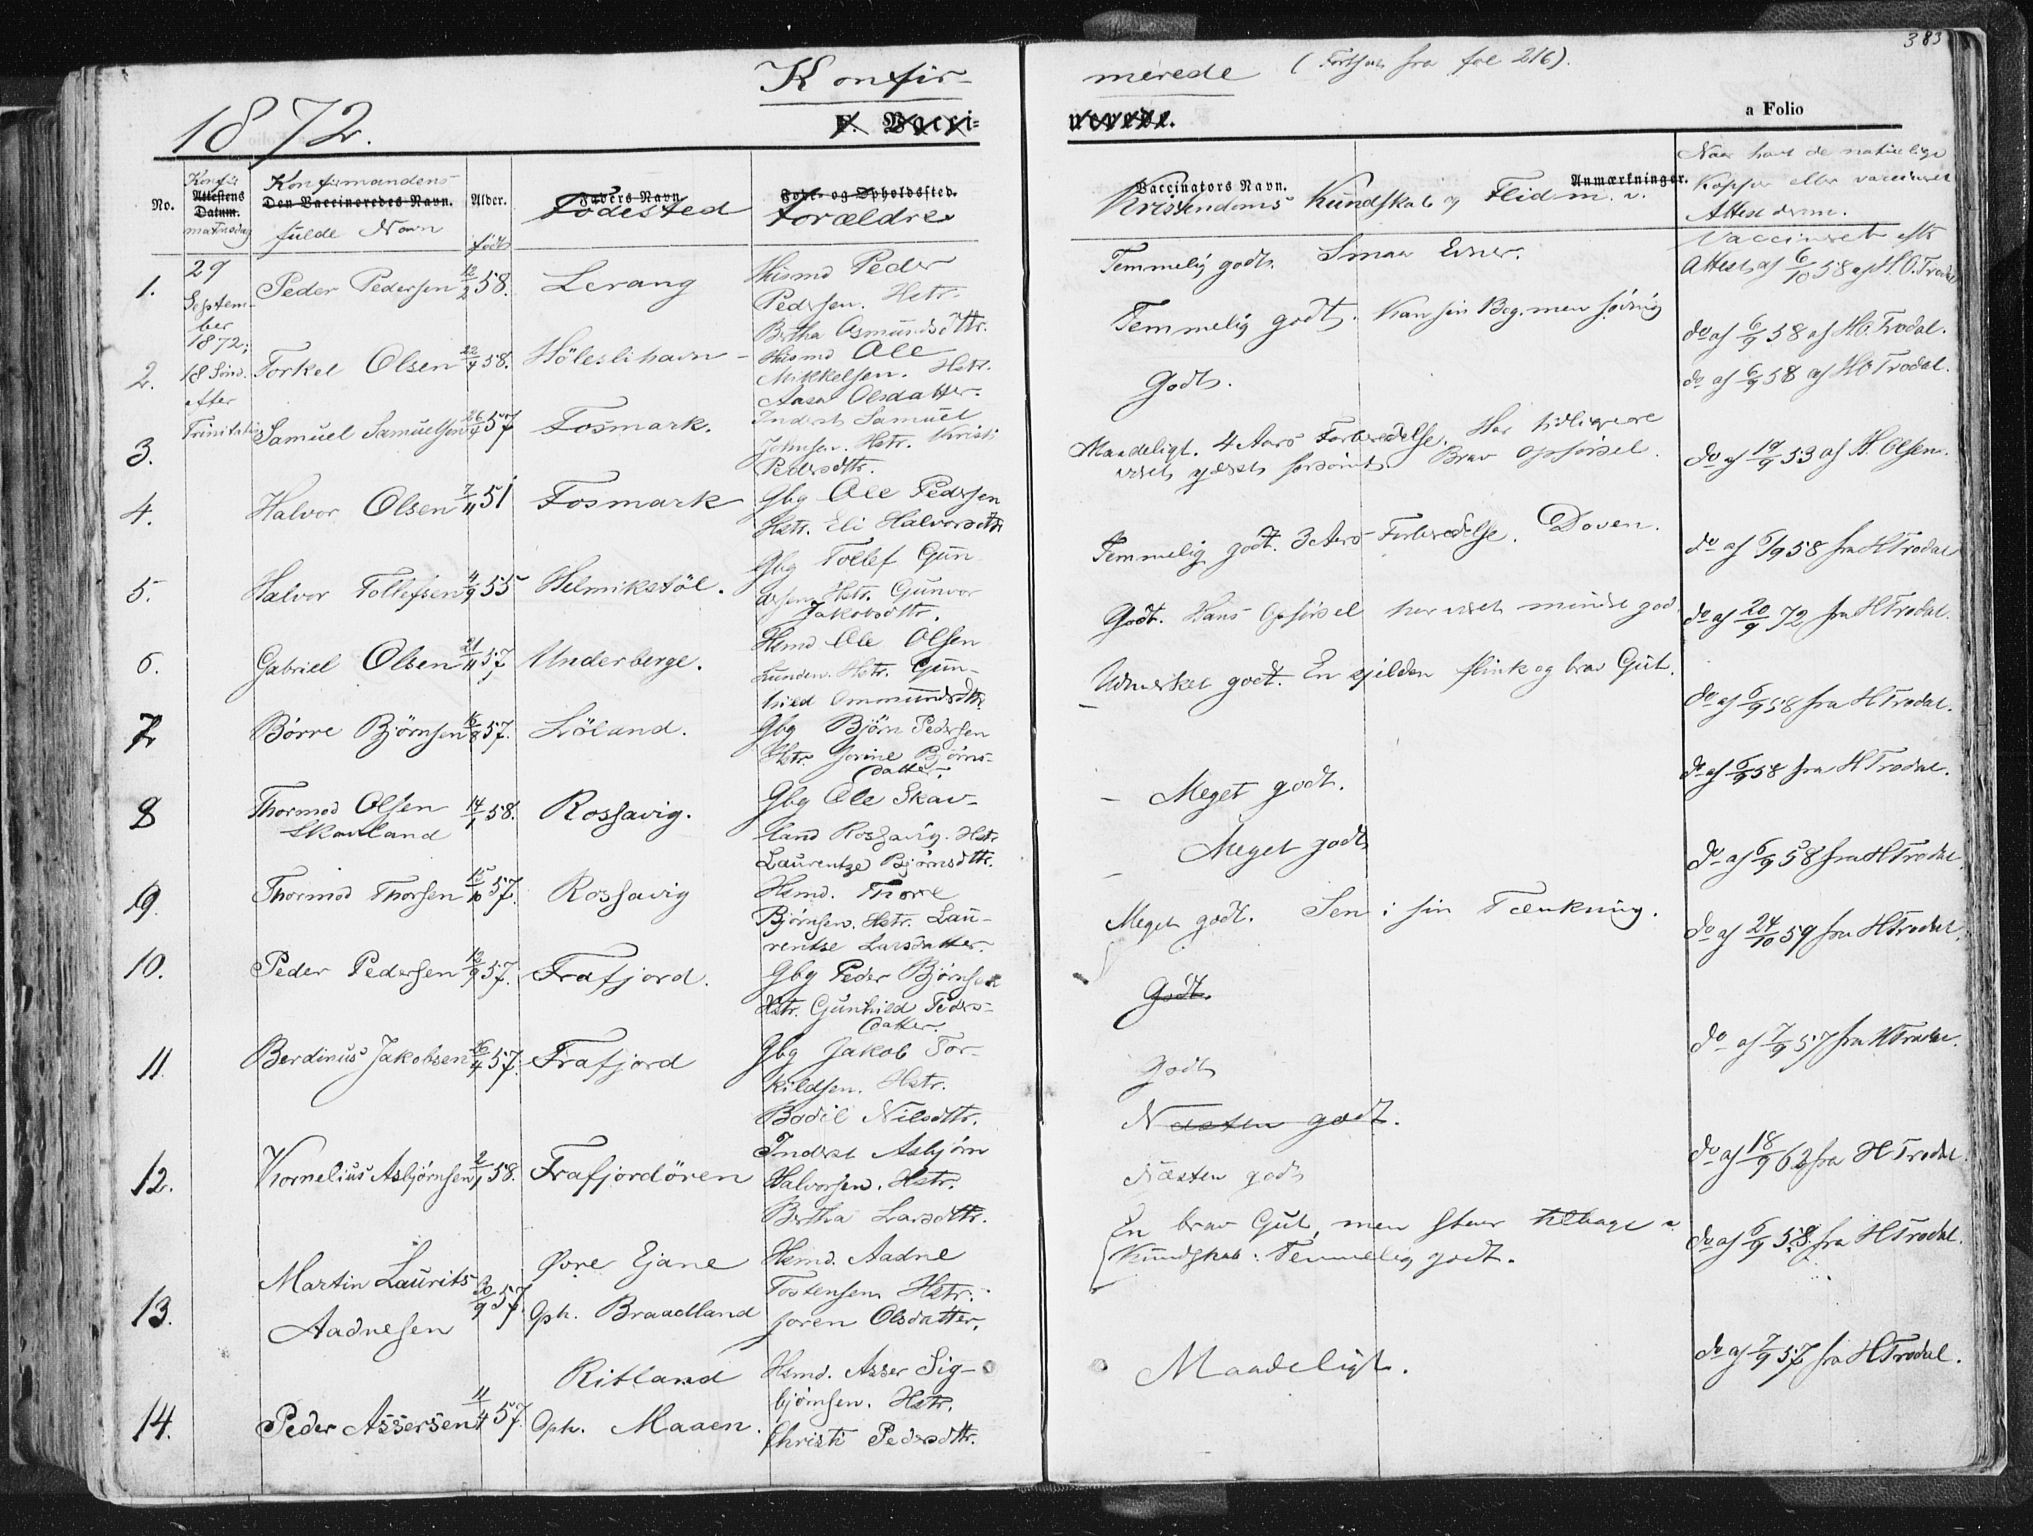 383
1872.
Konfir-
merede (Fortsat fra fol 216).
F. Vacci-
nerede.
a Folio
No.
Konfir
Attestens
Datum.
mationsdag
Konfirmandens
Den Vaccineredes Navn.
fulde Navn
Alder.
født
Faders Navn
Födested
Føde- og Opholdssted.
Forældre
Vaccinators Navn.
Anmærkninger.
Kristendoms Kundskab og Flid m. v.
Naar havt de naturlige
Kopper eller vaccineret
Attest derom.
29
September
1872;
18 Sönd.
efter
Trinitatis
1. Peder Pedersen 12/2 58. Lerang
Husmd Peder
Pedersen. Hstr.
Bertha Asmundsdttr.
Temmelig godt. Smaa Evner.
Vaccineret eftr
Attest af 6/10 58 af H.O. Trodal
2. Torkel Olsen 22/4 58. Höleslihavn
Husmd Ole
Mikkelsen. Hstr.
Aasa Olsdatter.
Temmelig godt. Kan sin Bog, men søvnig
do af 6/9 58 af HO Trodal.
3. Samuel Samuelsen 26/9 57 Fosmark.
Inderst Samuel
Johnsen. Hstr. Kristi
Pedersdttr.
Godt.
do af 6/9 58 af HO Trodal.
4. Halvor Olsen 7/11 51 Fosmark
Gbg Ole Pedersen
Hstr. Eli Halvorsdttr
Maadeligt. 4 Aars Forberedelse. Har tidligere
været yderst forsømt. Brav Opførsel.
do af 19/9 53 af H. Olsen.
5. Halvor Tollefsen 4/9 55 Helmikstöl.
Gbg Tollef Gun-
dersen Hstr. Gunvor
Jakobsdttr.
Temmelig godt. 3 Aars Forberedelse. Doven.
do af 6/9 58 fra H Trodal
6. Gabriel Olsen 21/11 57 Underberge.
Hsmd Ole Olsen
Lunden. Hstr. Gun-
hild Ommundsdttr.
Godt. Hans Opførsel har været mindre god.
do af 20/9 72 fra H Trodal.
7. Börre Björnsen 16/8 57. Löland.
Gbg Björn Pedersen
Hstr. Gorine Björns-
datter.
Udmærket godt. En sjelden flink og brav Gut.
do af 6/9 58 fra H Trodal.
8 Thormod Olsen
Skavland 14/1 58. Rossavig.
Gbg Ole Skav-
land Rossavig. Hstr
Laurentze Bjørnsdttr.
Meget godt.
do af 6/9 58 fra H Trodal.
9. Thormod Thorsen 15/10 57. Rossavig
Hsmd. Thore
Bjørnsen. Hstr. Lau-
rentse Larsdatter.
Meget godt
do af 6/9 58 fra H Trodal.
10. Peder Pedersen 12/9 57. Frafjord.
Gbg Peder Bjørnsen
Hstr. Gunhild Peders-
datter.
Meget godt. Sen i sin Tænkning.
do af 24/10 59 fra H Trodal.
Godt.
11. Berdinus Jakobsen 26/4 57. Frafjord
Gbg Jakob Tor-
kildsen. Hstr.
Bodil Nilsdttr.
Godt
do af 7/9 57 fra H Trodal.
Næsten godt.
12. Kornelius Asbjørnsen 2/1 58. Frafjordören
Inderst Asbjørn
Halvorsen. Hstr.
Bertha Larsdttr.
Næsten godt
do af 18/9 62 fra H Trodal.
13. Martin Laurits
Aadnesen 20/9 57. Øvre Ejane
Oph. Braadland
Hsmd. Aadne
Tostensen Hstr.
Joren Olsdatter.
En brav Gut, men staar tilbage i
Kundskab: Temmelig godt.
do af 6/9 58. fra H Trodal.
14. Peder Assersen 11/4 57. Ritland
Oph. Maaen.
Hsmd. Asser Sig-
bjørnsen. Hstr.
Christi Pedersdttr.
Maadeligt.
do af 7/9 57 fra H Trodal.